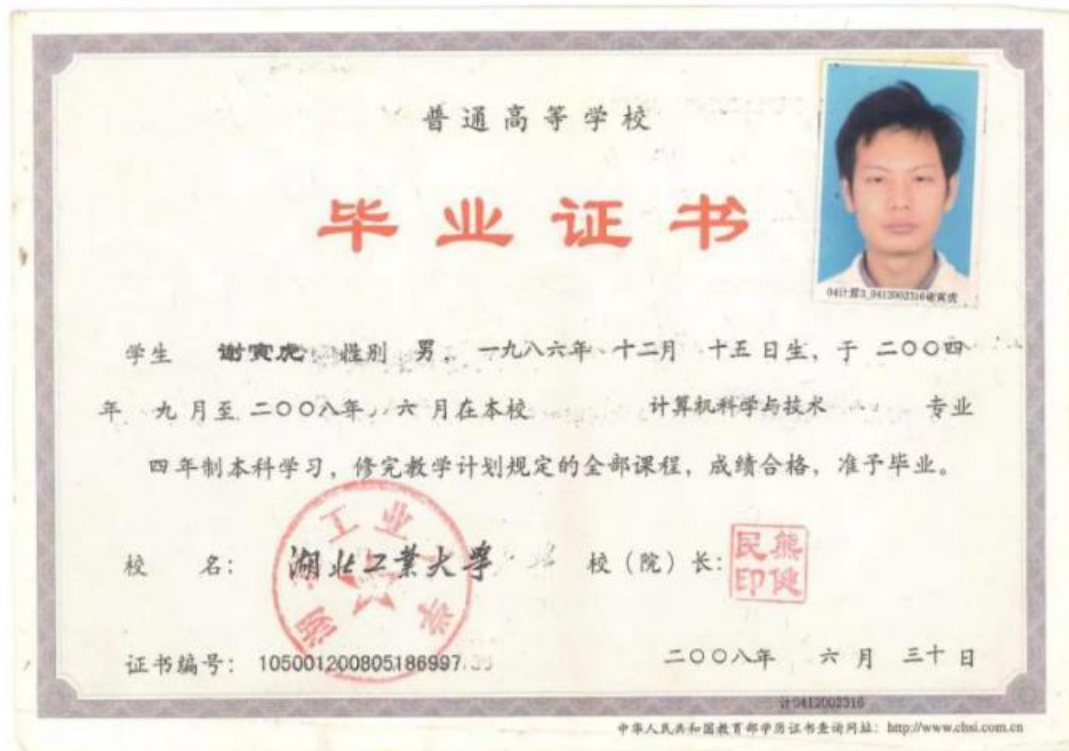 普通高等学校
毕业证书
04计算3_0412002316谢寅虎
学生 谢寅虎 性别 男， 一九八六年 十二月 十五 日生，于 二〇〇四
年 九 月至 二〇〇八年 六 月在本校 计算机科学与技术 专业
四 年制本科学习，修完教学计划规定的全部课程，成绩合格，准予毕业。
校 名： 湖北工業大學 校（院）长：
湖 工业 学
熊健民印
证书编号： 105001200805186997
二〇〇八年 六 月 三十 日
计0412002316
中华人民共和国教育部学历证书查询网址：http://www.chsi.com.cn